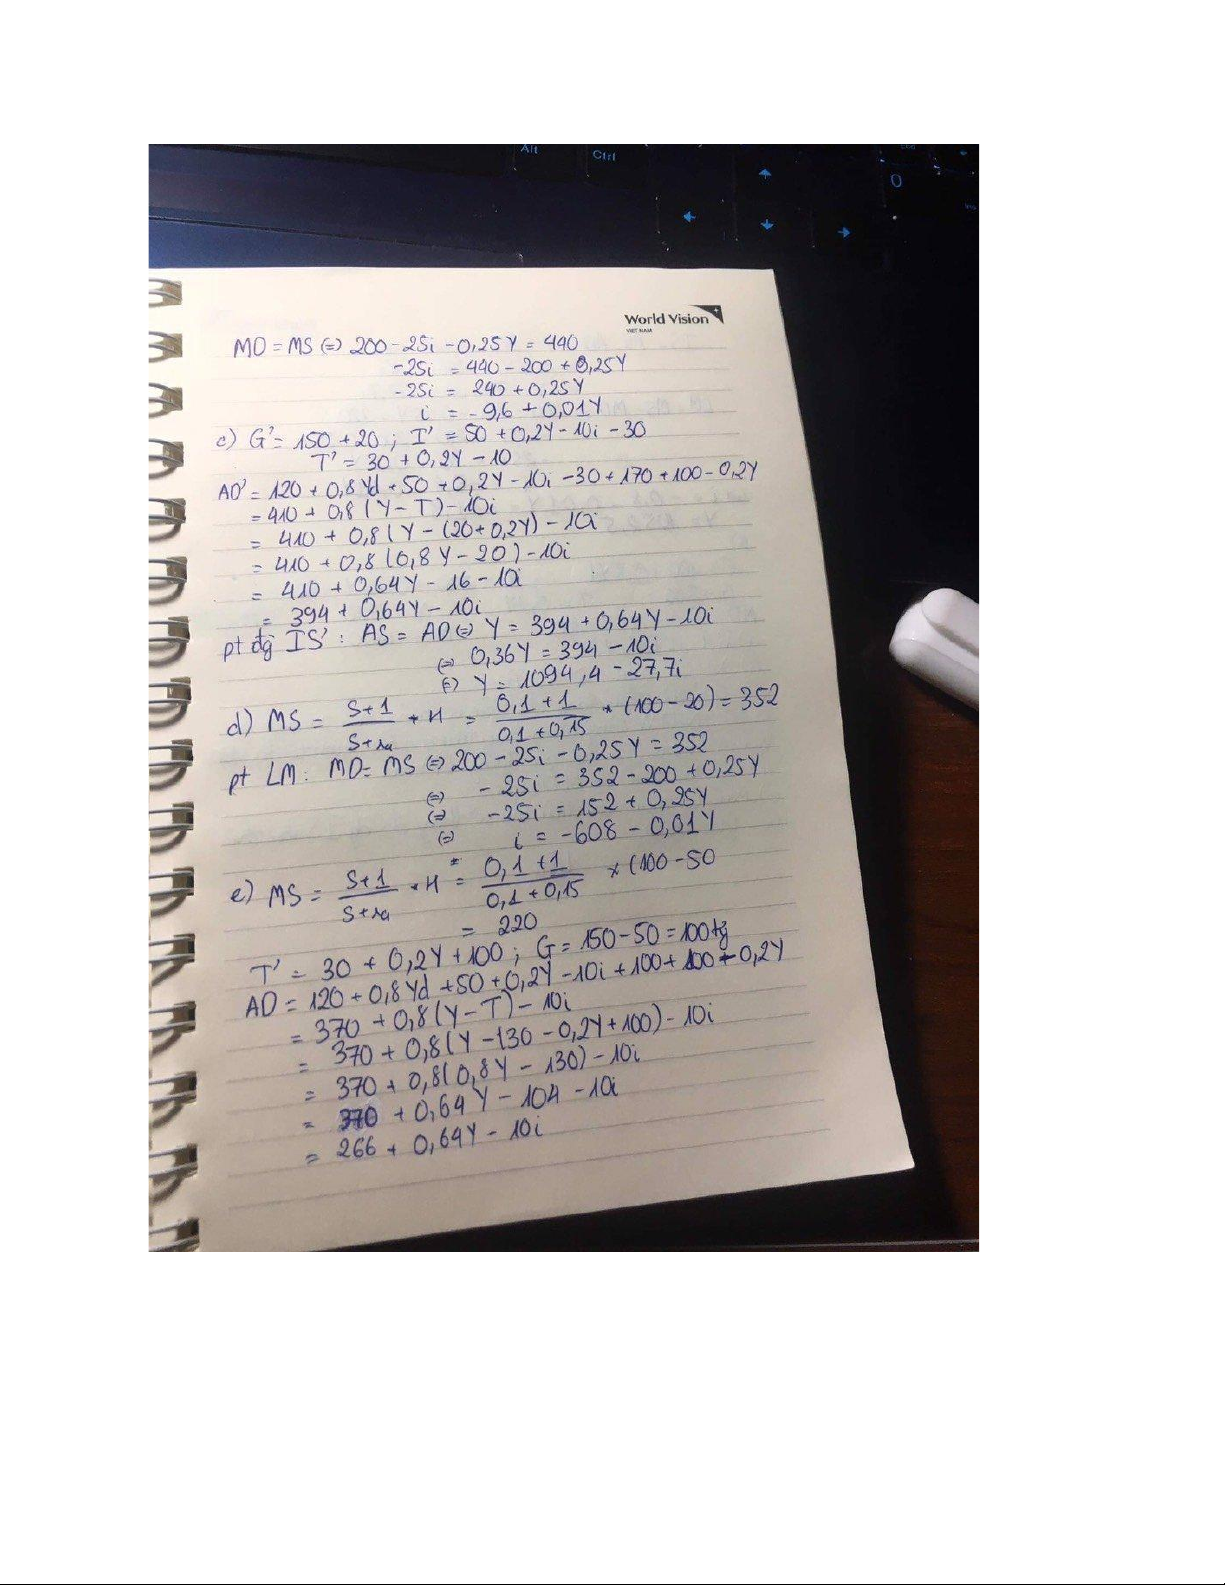 Alt
Ctrl
0
World Vision
VIET NAM
MD = MS (=) 200 - 25i - 0,25Y = 440
-25i = 440 - 200 + 0,25Y
-25i = 240 + 0,25Y
i = -9,6 + 0,01Y
c) G' = 150 + 20 ; I' = 50 + 0,2Y - 10i - 30
T' = 30 + 0,2Y - 10
AD' = 120 + 0,8Yd + 50 + 0,2Y - 10i - 30 + 170 + 100 - 0,2Y
= 410 + 0,8(Y - T) - 10i
= 410 + 0,8(Y - (20 + 0,2Y) - 10i
= 410 + 0,8(0,8Y - 20) - 10i
= 410 + 0,64Y - 16 - 10i
= 394 + 0,64Y - 10i
pt đg IS' : AS = AD (=) Y = 394 + 0,64Y - 10i
(=) 0,36Y = 394 - 10i
(=) Y = 1094,4 - 27,7i
d) MS = s+1 / s+ra * H = 0,1+1 / 0,1+0,15 * (100 - 20) = 352
pt LM : MD = MS (=) 200 - 25i - 0,25Y = 352
(=) -25i = 352 - 200 + 0,25Y
(=) -25i = 152 + 0,25Y
(=) i = -608 - 0,01Y
e) MS = s+1 / s+ra * H = 0,1+1 / 0,1+0,15 * (100 - 50
= 220
T' = 30 + 0,2Y + 100 ; G = 150 - 50 = 100 tỷ
AD = 120 + 0,8Yd + 50 + 0,2Y - 10i + 100 + 100 - 0,2Y
= 370 + 0,8(Y - T) - 10i
= 370 + 0,8(Y - (30 - 0,2Y + 100) - 10i
= 370 + 0,8(0,8Y - 130) - 10i
= 370 + 0,64Y - 104 - 10i
= 266 + 0,64Y - 10i